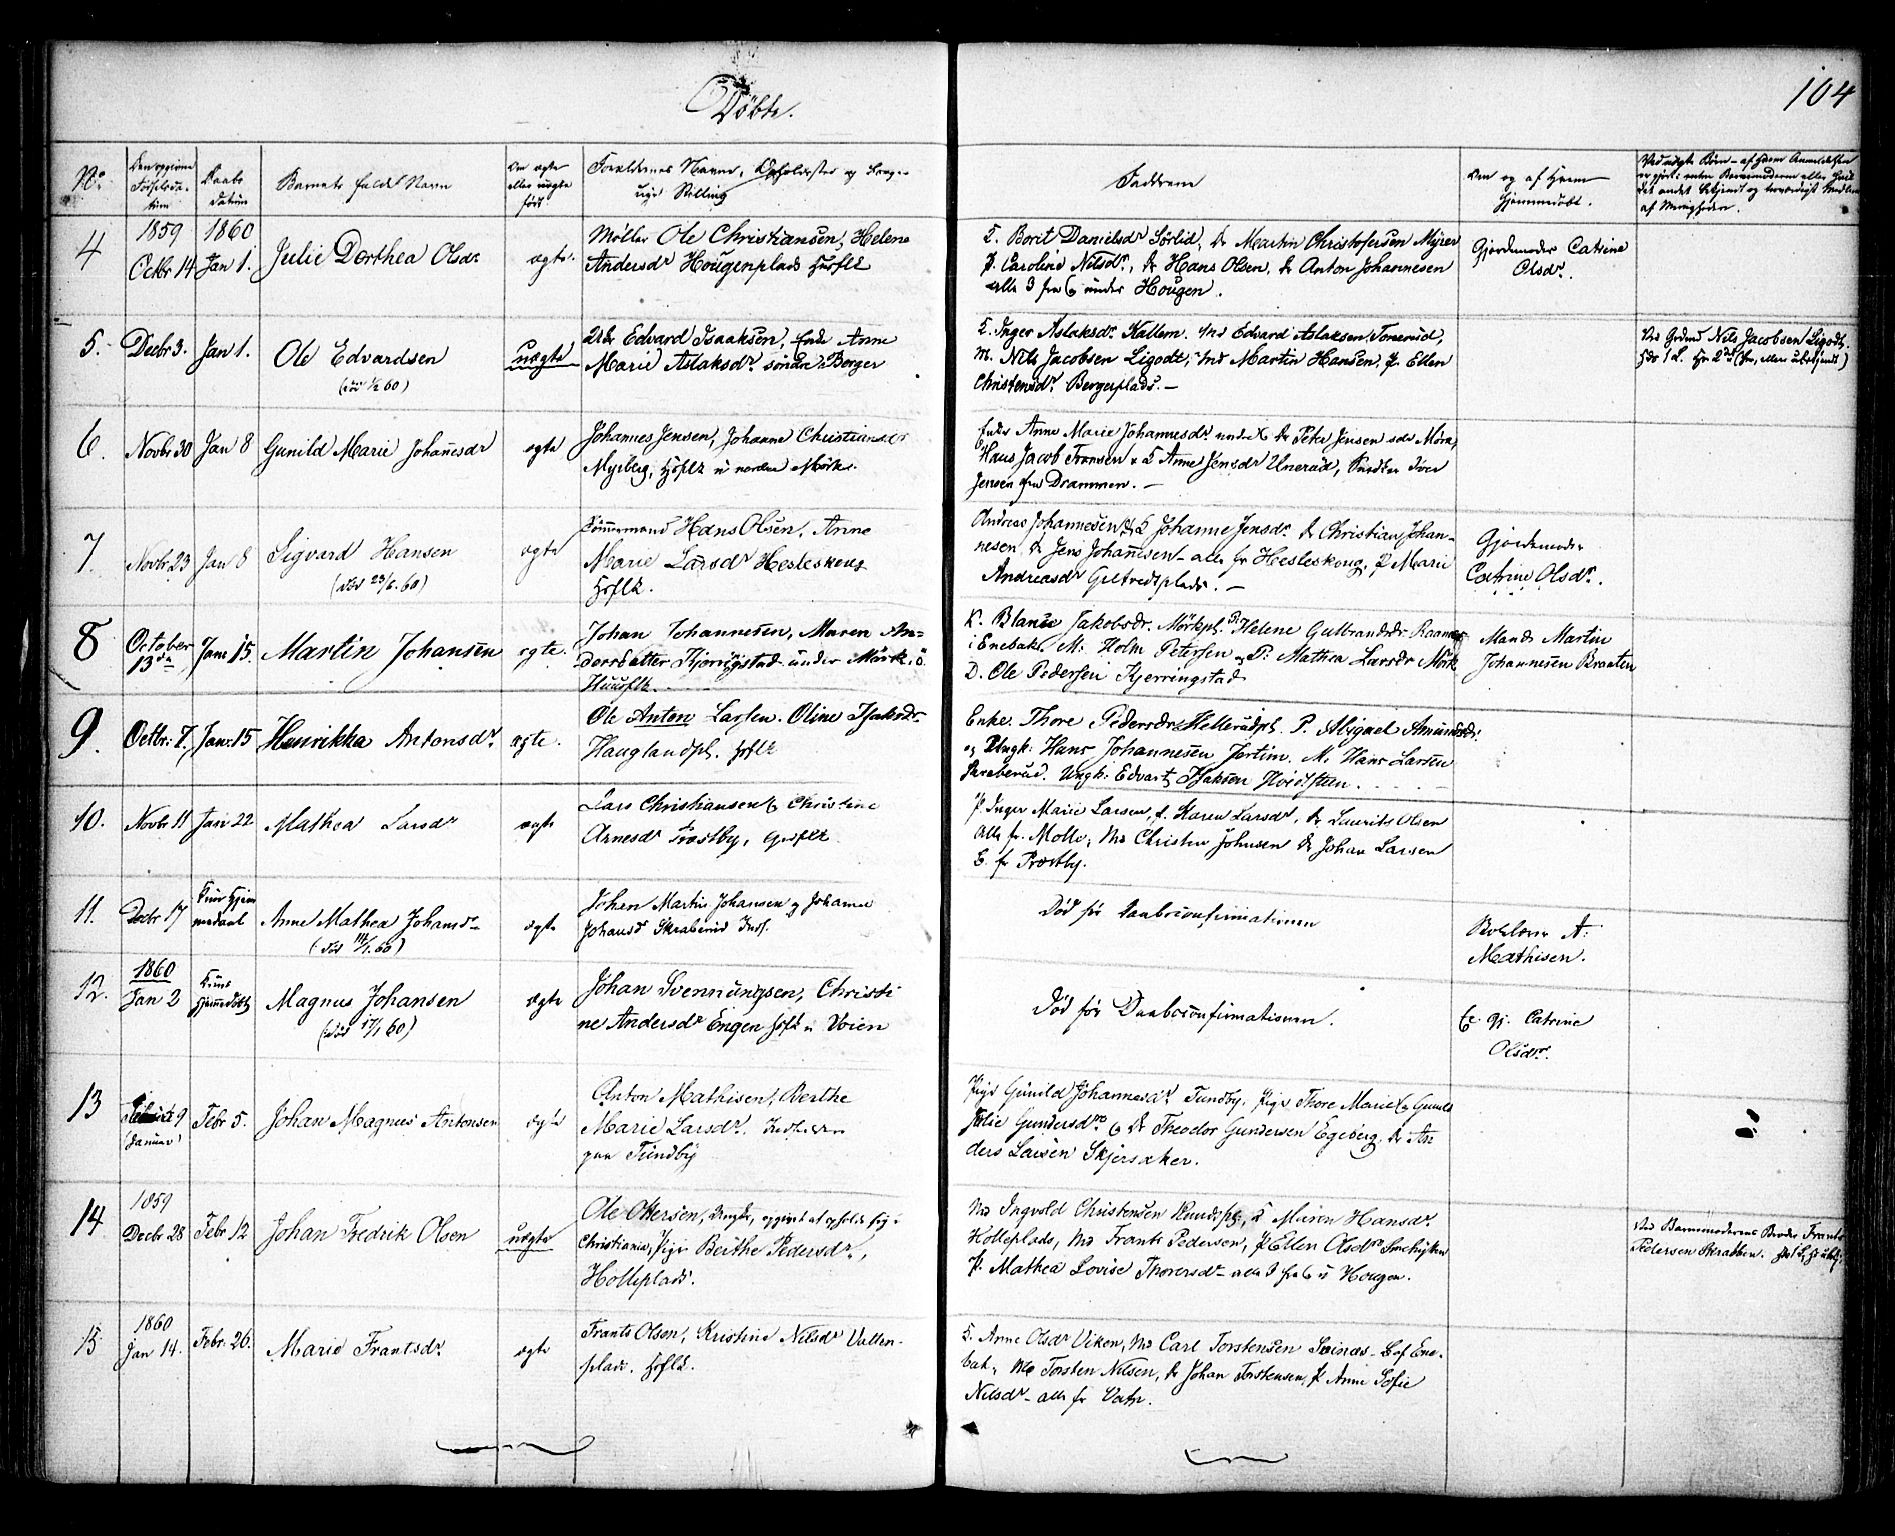 Döbte.
104
No
Den opgivne Födselsdatum
Daabsdatum
Barnets fulde Navn
Om ægte eller uægte født.
Forældrenes Navne, Opholdssted og borgerlige Stilling
Fadderne
Om og af Hvem Hjemmedøbt.
af Menigheden.
4
1859
Octbr 14
1860
Jan 1.
Julie Dorthea Olsdr
ægte.
Møller Ole Christiansen, Helene
Andersdr Hougenplads Husflk
E. Borit Danielsdr Sörlid, Dr Martin Christofersen Myrer
P. Caroline Nilsdr., Dr Hans Olsen, Dr Anton Johannesen
alle 3 fra under Hougen.
Gjordemoder Catrine
Olsdr.
5.
Decbr 3.
Jan 1.
Ole Edvardsen
(död 60)
uægte
Edvard Isaaksen, Enke Anne
Marie Aslaksdr. söndre Borger
E. Inger Aslaksdr. Kallem. Md Edvard Aslaksen Tomerud,
M. Nils Jacobsen Ligodt, Md Martin Hansen, P. Ellen
Christensdr. Bergerplads. –
Nils Jacobsen Ligodt.
6.
Novbr 30
Jan 8
Gunild Marie Johanesdr
ægte
Johannes Jensen, Johanne Christiansdr
Myrberg, Husflk u nordre Mörk.
Enke Anne Marie Johannesdr. Dr Peter Jensen Mörk,
Hans Jacob Fransen E Anne Jensdr Unerud, Iver
Jensen fra Drammen. –
7.
Novbr 23
Jan 8
Sigvard Hansen
(död 60)
ægte
Tömmermand Hans Olsen, Anne
Marie Larsdr Hesleskoug
Husflk.
Andreas Johannesen, E Johanne Jensdr. Dr Christian Johan-
nesen, Dr Jens Johannesen – alle fr Hesleskoug, P Marie
Andreasdr Geltvedtplads. –
Gjordemoder
Catrine Olsdr.
8
October
13de
Janr 15.
Martin Johansen
ægte.
Johan Johannesen, Maren An-
dersdatter Kjerringstad under Mörk,
Huusflk.
K. Blanse Jakobsdr. Mörkpl. P. Helene Gulbrandsdr
i Enebak. M. Holm Petersen og P. Mathea Larsdr Mörk
D. Ole Pedersen Kjerringstad
Mands Martin
Johannesen Braaten
9.
Octbr. 7.
Janr. 15
Henrikka Antonsdr.
ægte.
Ole Anton Larsen. Oline Isaksdr.
Hauglandpl. Husflk
Enke. Thore Pedersdr Hellerudpl. P. Abigael Amundsdr.
og Ungk: Hans Johannesen Jertim. M. Hans Larsen
Skraberud. Ungk. Edvart Isaksen Hvidsteen.
10.
Novbr 11
Jan 22
Mathea Larsdr
ægte
Lars Christiansen & Christine
Arnesdr Prostby, Husflk
P. Inger Marie Larsen, E. Karen Larsdr, Dr Laurits Olsen
alle fr. Molle, Md Christen Johnsen Dr Johan Larsen
fr Prostby.
11.
Decbr 17
Kun Hjem
medaab
Anne Mathea Johansdr
(död 60)
ægte
Johan Martin Johansen og Johanne
Johansd Skraberud Inds.
Död för Daabsconfirmationen
A.
Mathisen.
12.
1860
Jan 2
Kuns
Hjemmedöbt
Magnus Johansen
(död 17/1 60)
ægte
Johan Svennungsen, Christi
ne Andersdr Engen Husflk u Voien
Död för Daabsconfirmationen.
Gj. Catrine
Olsdr.
13
9
(Januar)
Febr 5.
Johan Magnus Antonsen
ægte
Anton Mathisen, Berthe
Marie Larsdr. Inderster
paa Tundby
Pige Gunild Johannesdr. Tundby. Pige Thore Marie
Julie Gundersdr & Dr Theodor Gundersen Egeberg, Dr An
ders Larsen Skjersaker.
14
1859
Decbr 28
Febr 12
Johan Fredrik Olsen
uægte
Ole Ottersen, Ungkr, opgivet at opholde sig i
Christiania, Pige Berthe Pedersdr,
Holleplads.
Md Ingvold Christensen Rundspl, E Maren Hansdr.
Holleplads, Md Frants Pedersen, P Ellen Olsdr Smehytten
P. Mathea Lovise Thorersdr – alle 3 fra u Hougen.
Ved Barnemoderens Broder Frants
Pedersen Skrabben.
15
1860
Jan 14.
Febr. 26.
Marie Frantsdr.
ægte
Frants Olsen, Kristine Nilsdr Vatten-
plads. Husflk.
E. Anne Olsdr Viken, Md Carl Torstensen af Ene-
bak, Md Torsten Nilsen, Dr Johan Torstensen, P Anne Sofie
Nilsdr – alle fr Vatn.